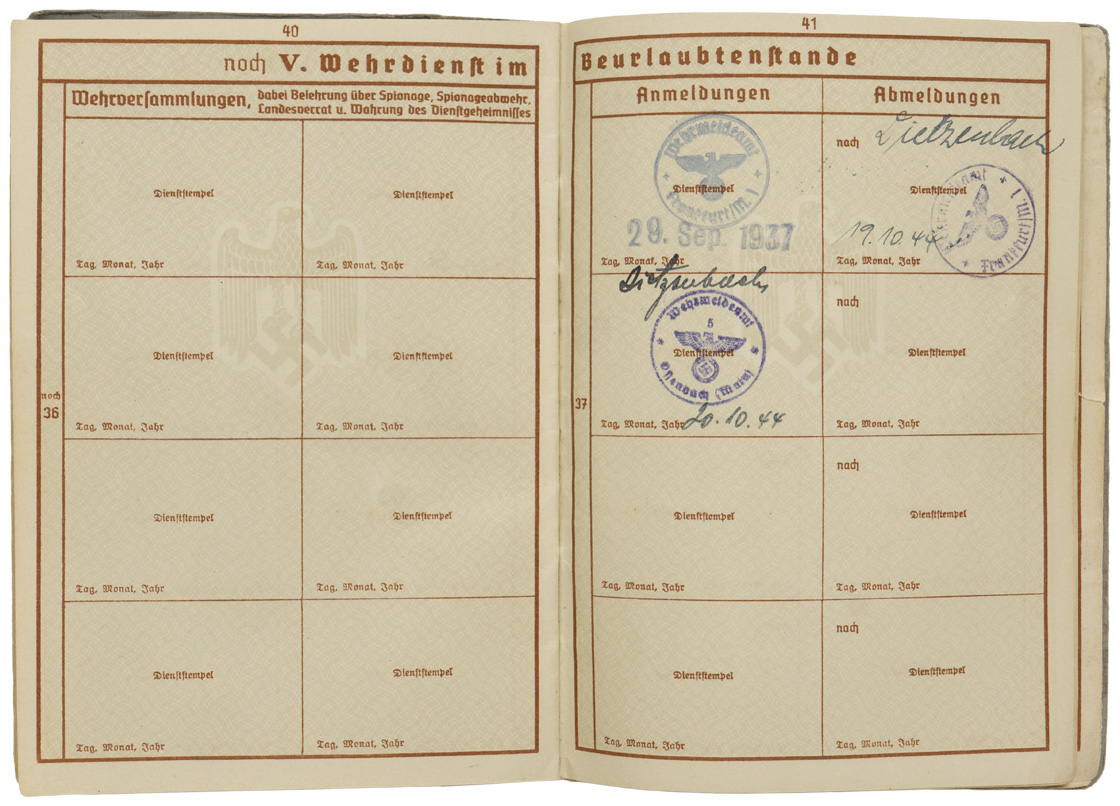 40
noch V. Wehrdienst im
Wehrversammlungen, dabei Belehrung über Spionage, Spionageabwehr,
Landesverrat u. Wahrung des Dienstgeheimnisses
Dienststempel Dienststempel
Tag, Monat, Jahr Tag, Monat, Jahr
Dienststempel Dienststempel
noch
36
Tag, Monat, Jahr Tag, Monat, Jahr
Dienststempel Dienststempel
Tag, Monat, Jahr Tag, Monat, Jahr
Dienststempel Dienststempel
Tag, Monat, Jahr Tag, Monat, Jahr
41
Beurlaubtenstande
Anmeldungen Abmeldungen
Wehrmeldeamt
Frankfurt/M. 1
Dienststempel
29. Sep. 1937
Tag, Monat, Jahr
nach Dietzenbach
Dienststempel
Wehrmeldeamt
Frankfurt/M. 1
19.10.44
Tag, Monat, Jahr
Dietzenbach
Wehrmeldeamt
5
Dienststempel
Offenbach (Main)
37
Tag, Monat, Jahr 20.10.44
nach
Dienststempel
Tag, Monat, Jahr
nach
Dienststempel Dienststempel
Tag, Monat, Jahr Tag, Monat, Jahr
nach
Dienststempel Dienststempel
Tag, Monat, Jahr Tag, Monat, Jahr